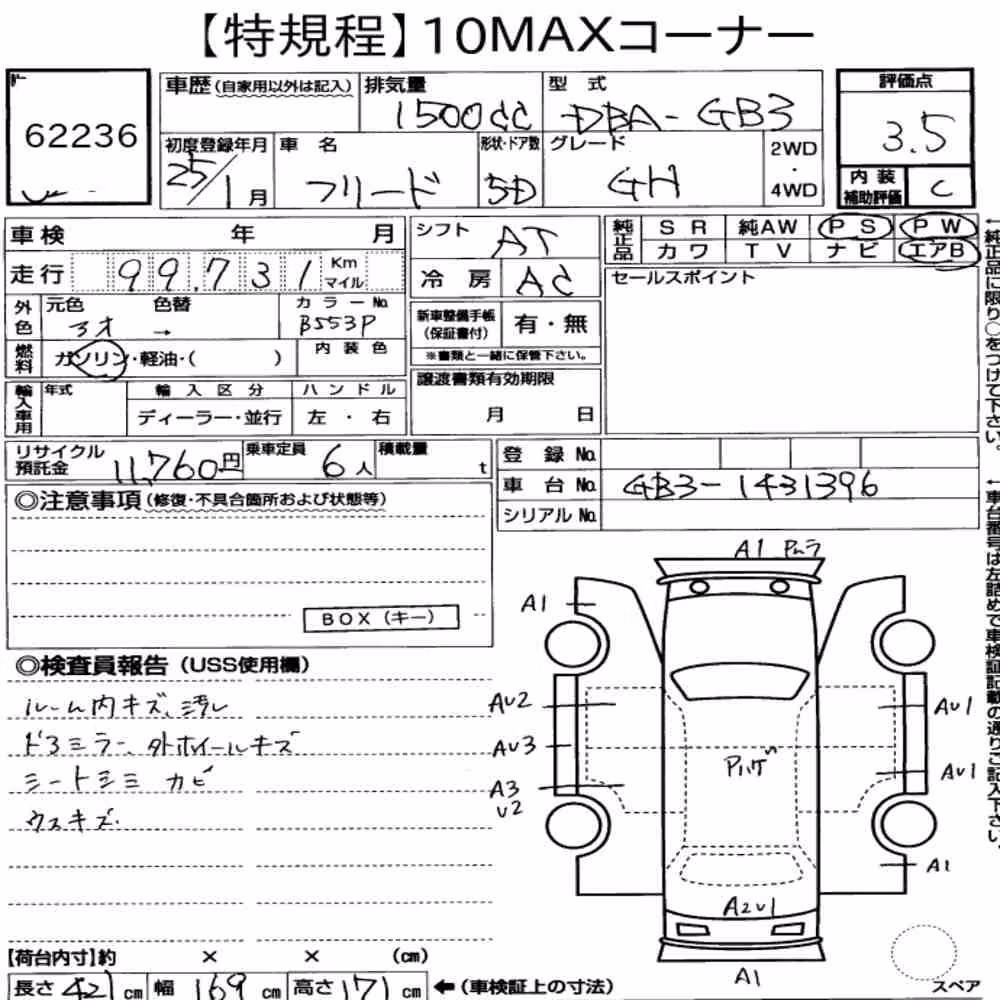 【特規程】10MAXコーナー
62236
車歴(自家用以外は記入) 排気量 1500cc 型式 DBA-GB3 評価点 3.5
初度登録年月 25/1月 車名 フリード 形状・ドア数 5D グレード GH 2WD・4WD 内装補助評価 C
車検 年 月
走行 99,731 Km マイル
外色 元色 アオ 色替 → カラーNo B553P
燃料 ガソリン・軽油・( ) 内装色
輸入車用 年式 輸入区分 ハンドル
ディーラー・並行 左・右
シフト AT
冷房 AC
新車整備手帳(保証書付) 有・無
※書類と一緒に保管下さい。
譲渡書類有効期限
月 日
純正品 SR 純AW PS PW
カワ TV ナビ エアB
セールスポイント
←純正品に限り○をつけて下さい。
リサイクル預託金 11,760円 乗車定員 6人 積載量 t
登録No.
車台No. GB3-1431396
シリアルNo.
←車台番号は左詰めで車検証記載の通りご記入下さい。
◎注意事項(修復・不具合箇所および状態等)
BOX(キー)
◎検査員報告(USS使用欄)
ルーム内キズ、汚レ
ドアミラー、外ホイールキズ
シートシミ カビ
ウスキズ.
A1 Pムラ
A1
AU2
AU3
A3
U2
AU1
AU1
A1
Pハゲ
A2U1
A1
スペア
【荷台内寸】約 × × (cm)
長さ 421 cm 幅 169 cm 高さ 171 cm ←(車検証上の寸法)